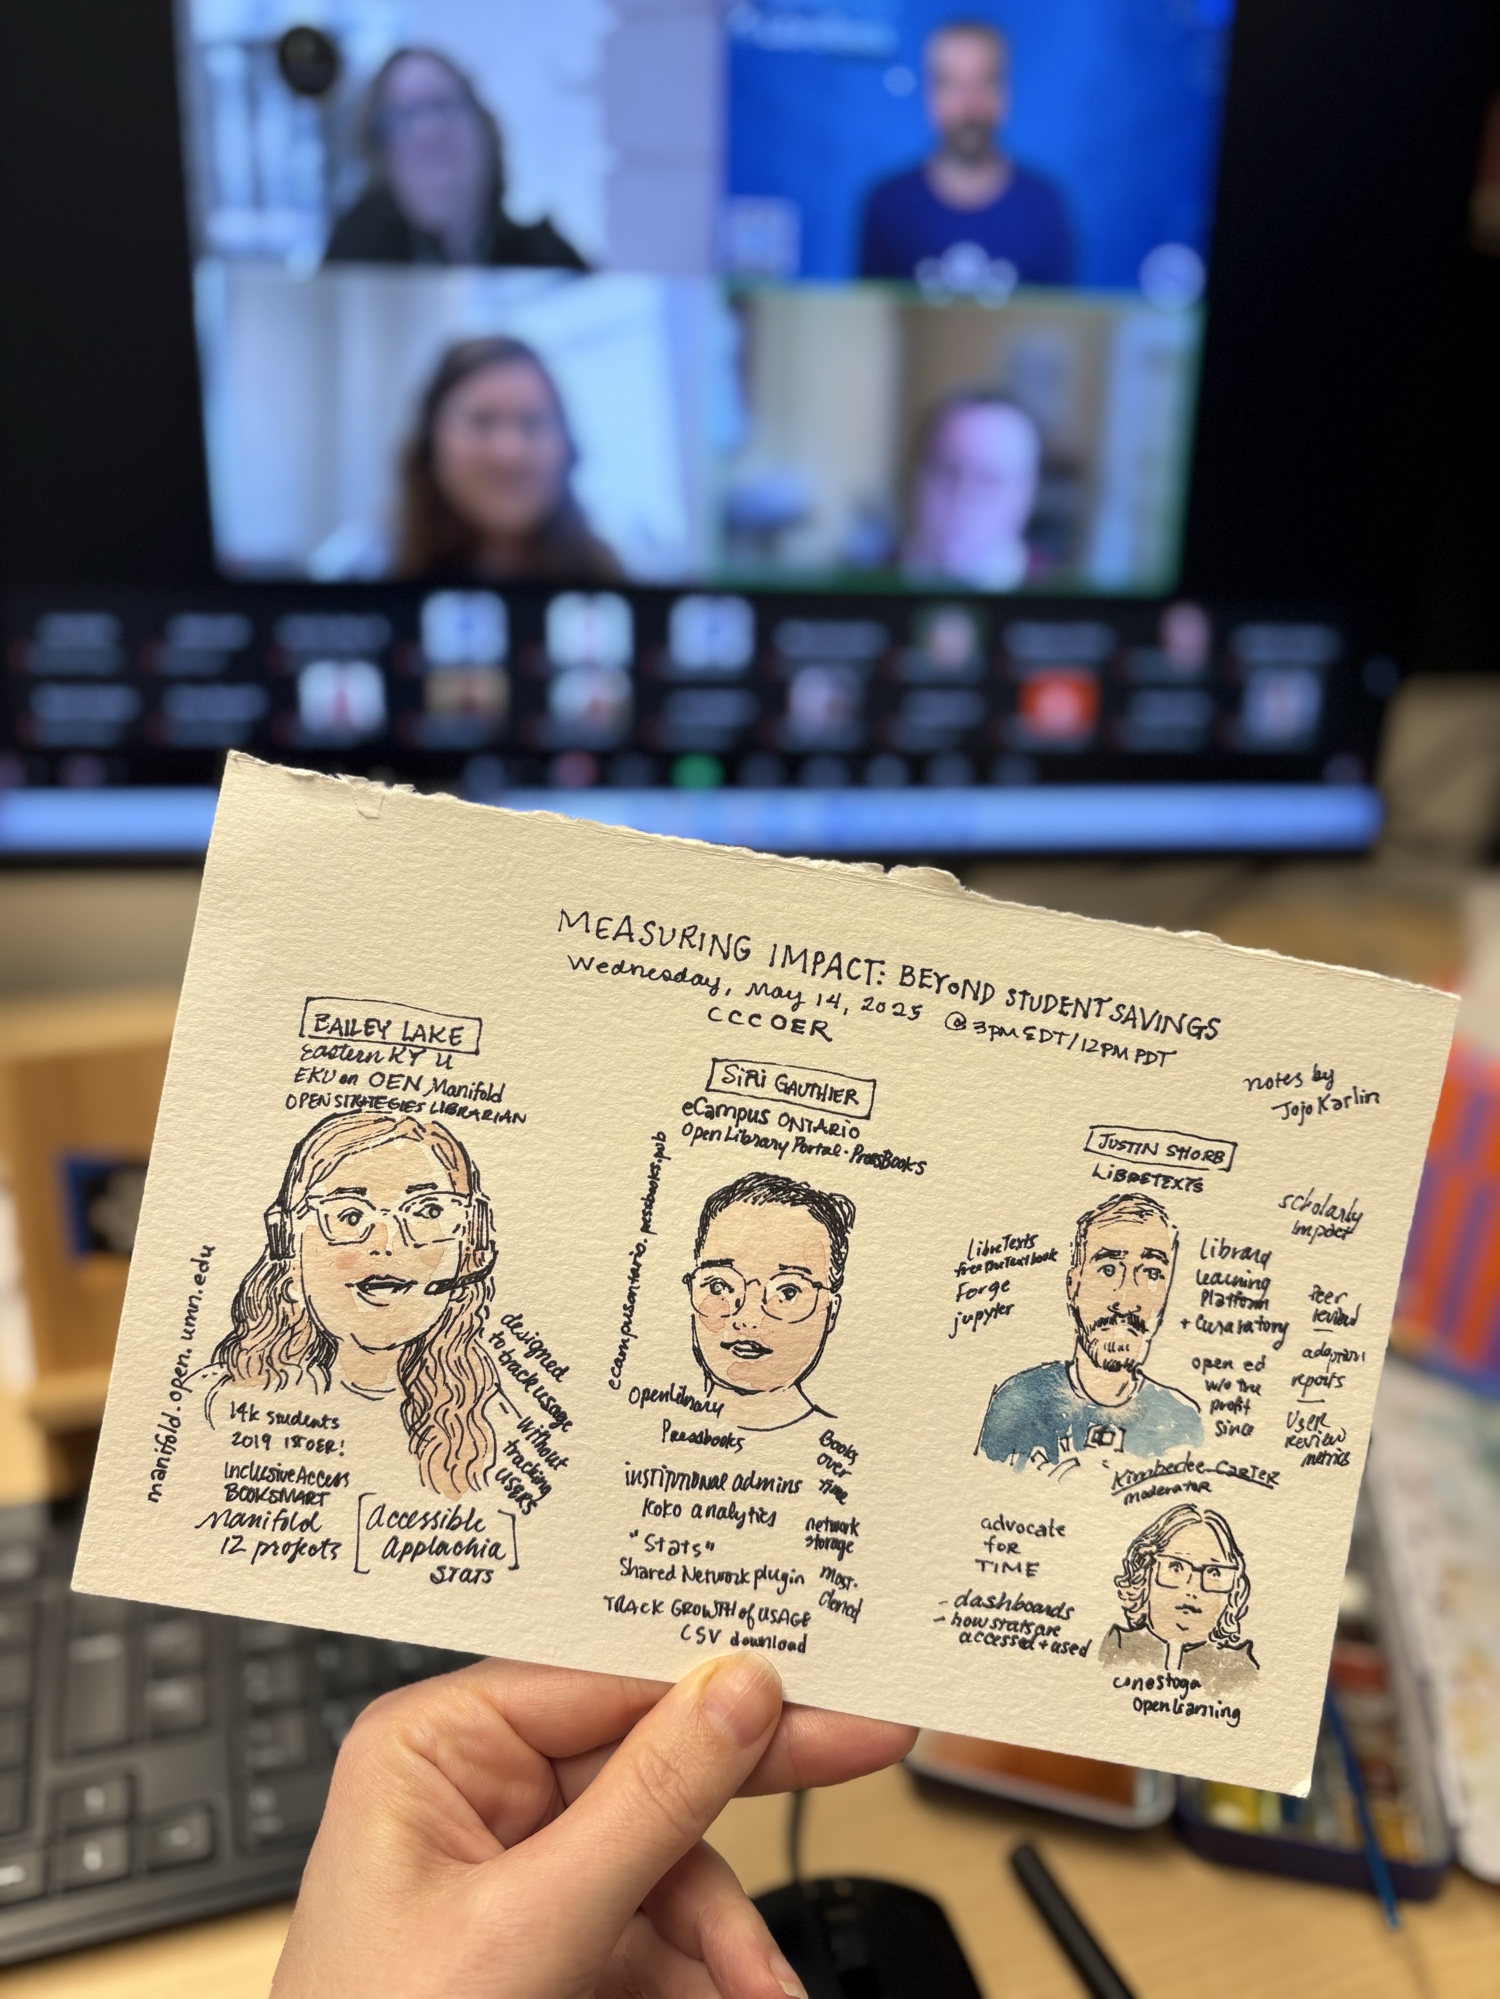 MEASURING IMPACT: BEYOND STUDENT SAVINGS
Wednesday, May 14, 2025 @ 3PM EDT/12PM PDT
CCCOER
notes by
Jojo Karlin
BAILEY LAKE
Eastern KY U
EKU on OEN Manifold
OPEN STRATEGIES LIBRARIAN
manifold.open.umn.edu
designed
to track usage
without
tracking
USERS
14k students
2019 1st OER!
Inclusive Access
BOOKSMART
Manifold
12 projects
[Accessible
Applachia]
STATS
SIRI GAUTHIER
eCampus ONTARIO
Open Library Portal · PressBooks
ecampusontario.pressbooks.pub
OpenLibrary
Pressbooks
institutional admins
Koko analytics
"Stats"
Shared Network plugin
TRACK GROWTH of USAGE
CSV download
Books
over
time
network
storage
most
cloned
JUSTIN SHORB
LIBRETEXTS
LibreTexts
Forge
jupyter
Library
Learning
Platform
open ed
w/o the
profit
since
scholarly
impact
Peer
review
reports
User
review
metrics
Kimberlee CARTER
moderator
advocate
for
TIME
- dashboards
- how stats are
accessed + used
Conestoga
Open Learning